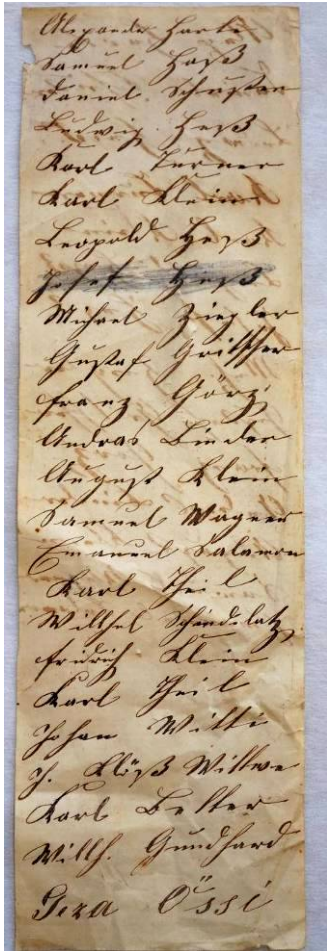 Samuel Haß
Daniel Schuster
Ludwig Heß
Karl Turner
Karl Klein
Leopold Heß
Josef Heß
Michael Ziegler
Gustaf
Franz Görz
Andras Binder
August Klein
Samuel Wagner
Emanuel Salamon
Karl Theil
Schindelatz
Fridrich Klein
Karl Theil
Johan Witti
J. Klöß Wittwe
Karl
Willh. Gundhard
Geza Össi